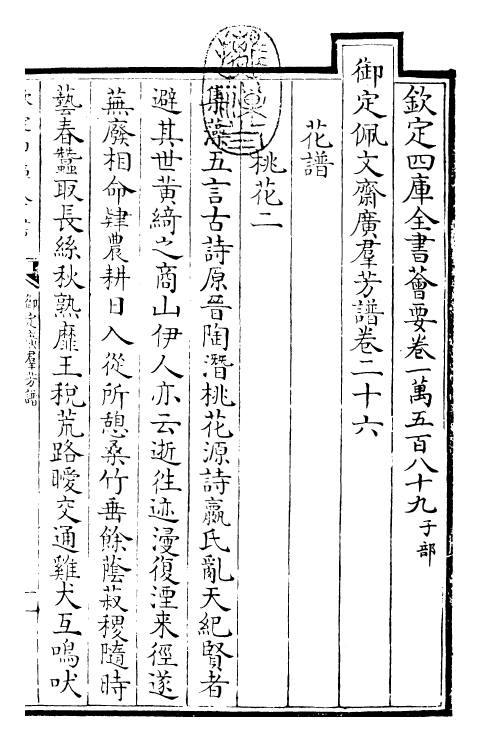 欽定四庫全書薈要卷一萬五百八十九子部
御定佩文齋廣羣芳譜卷二十六
花譜
桃花二
集藻五言古詩原晉陶潛桃花源詩嬴氏亂天紀賢者
避其世黃綺之商山伊人亦云逝徃迹漫復湮来徑遂
蕪廢相命肄農耕日入從所憩桑竹垂餘蔭菽稷隨時
藝春蠶取長絲秋熟靡王稅荒路曖交通雞犬互鳴吠
御定廣羣芳譜